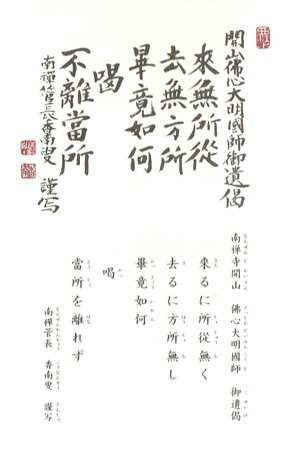 開山佛心大明國師御遺偈
來無所從
去無方所
畢竟如何
喝
不離當所
南禪管長香南叟 謹写
南禅寺開山 佛心大明國師 御遺偈
來るに所從無く
去るに方所無し
畢竟如何
喝
當所を離れず
南禅管長 香南叟 謹写